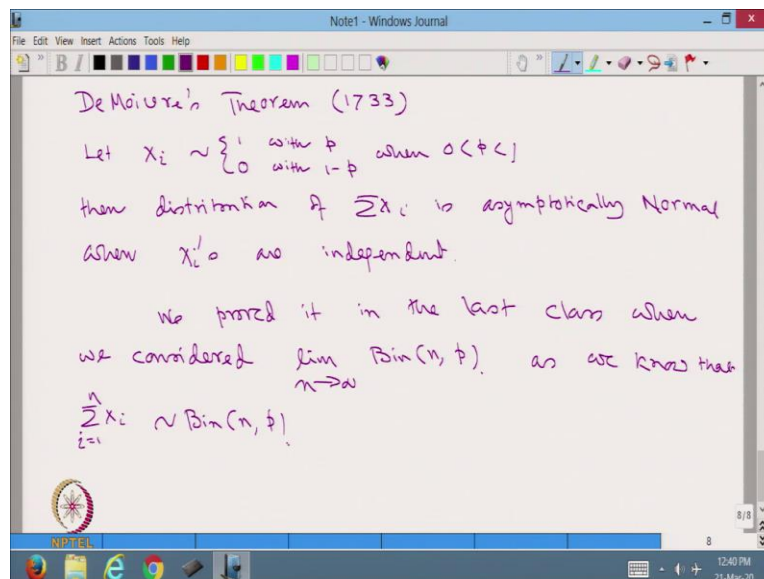 Note1 - Windows Journal
File Edit View Insert Actions Tools Help
B I
DeMoivre's Theorem (1733)
Let Xᵢ ~ { 1 with p when 0<p<1
0 with 1-p
then distribution of ΣXᵢ is asymptotically Normal
when Xᵢ's are independent.
We proved it in the last class when
we considered lim Bin(n, p). as we know that
n→∞
n
ΣXᵢ ~ Bin(n, p).
i=1
8/8
NPTEL
8
12:40 PM
21-Mar-20